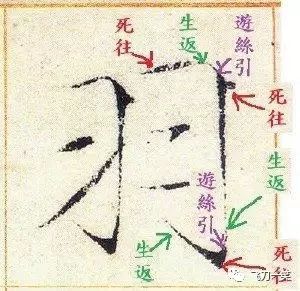 死往
生返
遊絲引
死往
生返
遊絲引
生返
死往
羽